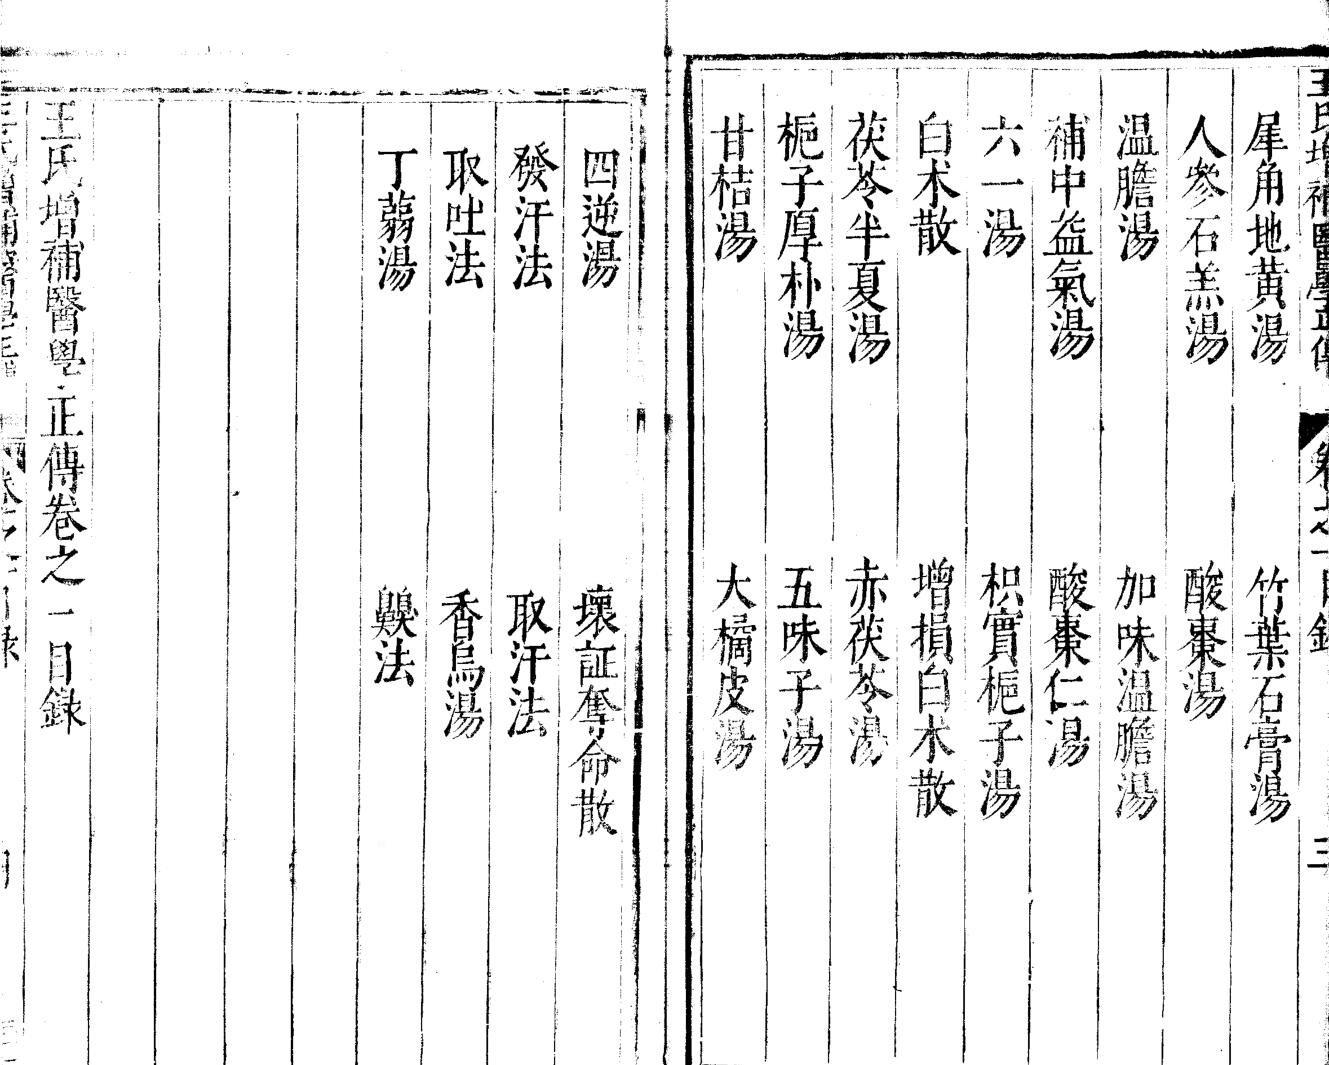 王氏增補醫學正傳 卷之一目錄 三
犀角地黃湯 竹葉石膏湯
人參石羔湯 酸棗湯
温膽湯 加味温膽湯
補中益氣湯 酸棗仁湯
六一湯 枳實梔子湯
白术散 增損白术散
茯苓半夏湯 赤茯苓湯
梔子厚朴湯 五味子湯
甘桔湯 大橘皮湯
四逆湯 壞証奪命散
發汗法 取汗法
取吐法 香烏湯
丁蒻湯 䶎法
王氏增補醫學正傳卷之一目録